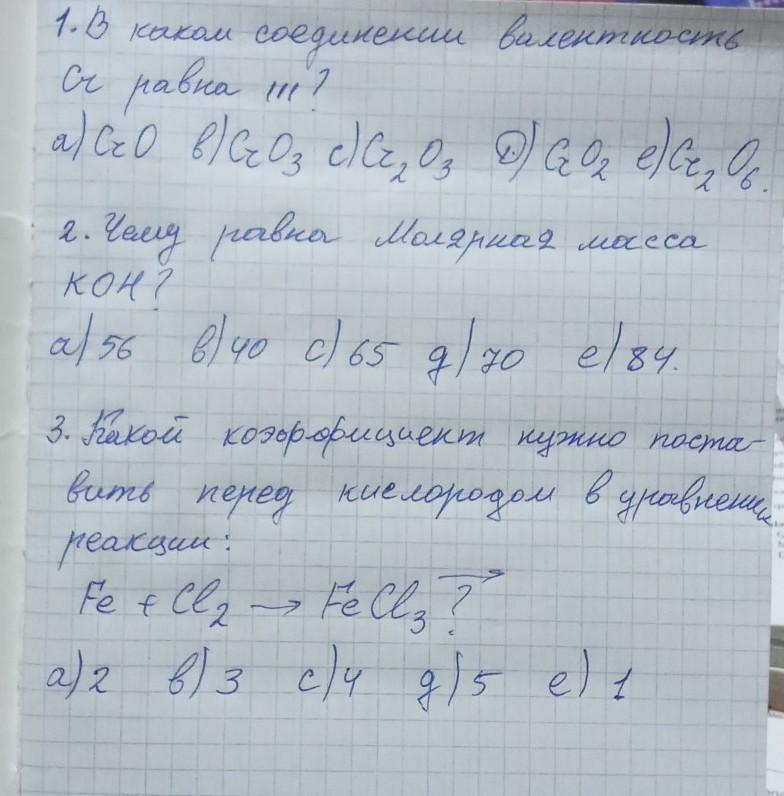 1. В каком соединении валентность
Cr равна III?
а) CrO в) CrO3 с) Cr2O3 D) CrO2 е) Cr2O6.
2. Чему равна Молярная масса
KOH?
а) 56 в) 40 с) 65 д) 70 е) 84.
3. Какой коэффициент нужно поста-
вить перед кислородом в уравнении
реакции:
Fe + Cl2 → FeCl3 ?
а) 2 в) 3 с) 4 д) 5 е) 1